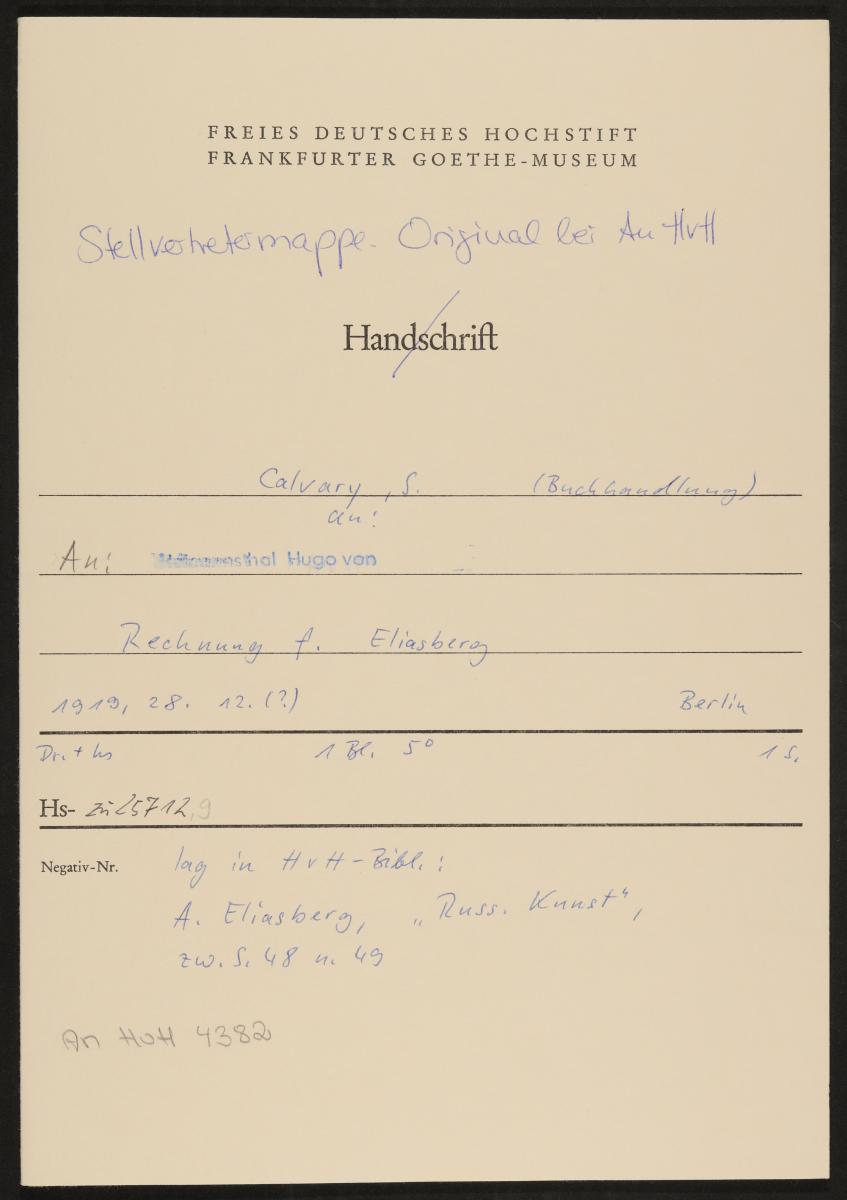 FREIES DEUTSCHES HOCHSTIFT
FRANKFURTER GOETHE-MUSEUM
Stellvertretermappe. Original bei An HvH
Handschrift
Calvary, S. (Buchhandlung)
an:
An: Hofmannsthal Hugo von
Rechnung f. Eliasberg
1919, 28. 12. (?) Berlin
Dr. + hs 1 Bl. 5° 1 S.
Hs- zu 25712,9
Negativ-Nr. lag in HvH-Bibl.:
A. Eliasberg, „Russ. Kunst“,
zw. S. 48 u. 49
An HvH 4382